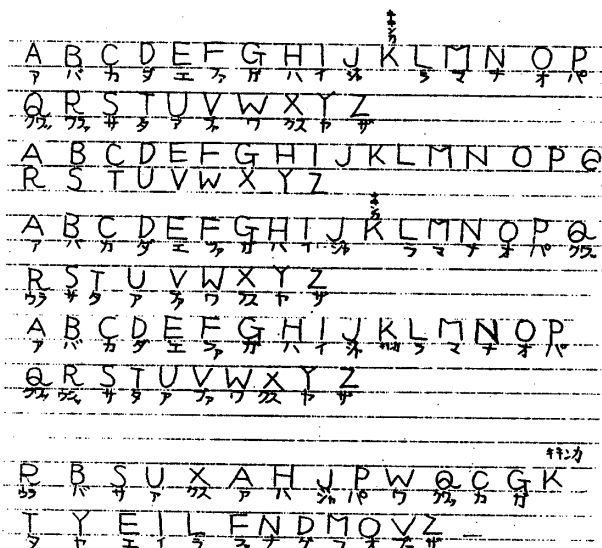 キキンカ
A B C D E F G H I J K L M N O P
ア バ カ ダ エ ファ ガ ハ イ ジャ ラ マ ナ オ パ
Q R S T U V W X Y Z
クヷ ウラ サ タ ア ファ ワ クス ヤ ザ
A B C D E F G H I J K L M N O P Q
R S T U V W X Y Z
キキンカ
A B C D E F G H I J K L M N O P Q
ア バ カ ダ エ ファ ガ ハ イ ジャ ラ マ ナ オ パ
R S T U V W X Y Z
ウラ サ タ ア ファ ワ クス ヤ ザ
A B C D E F G H I J K L M N O P
ア バ カ ダ エ ファ ガ ハ イ ラ マ ナ オ パ
Q R S T U V W X Y Z
サ タ ア ファ ワ クス ヤ ザ
キキンカ
R B S U X A H J P W Q C G K
ウラ バ サ ア クス ア ハ ジャ パ ワ カ ガ
T Y E I L F N D M O V Z
タ ヤ エ イ ラ ファ ナ ダ マ オ ザ